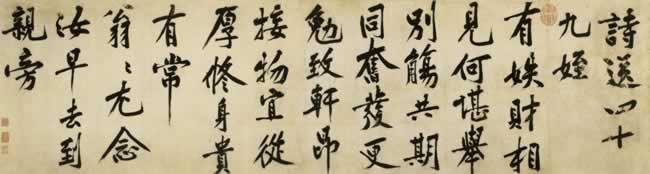 詩送四十
九姪
有妷財相
見何堪舉
別觴共期
同奮發更
勉致軒昂
接物宜從
厚脩身貴
有常
翁〻尤念
汝早去到
親旁